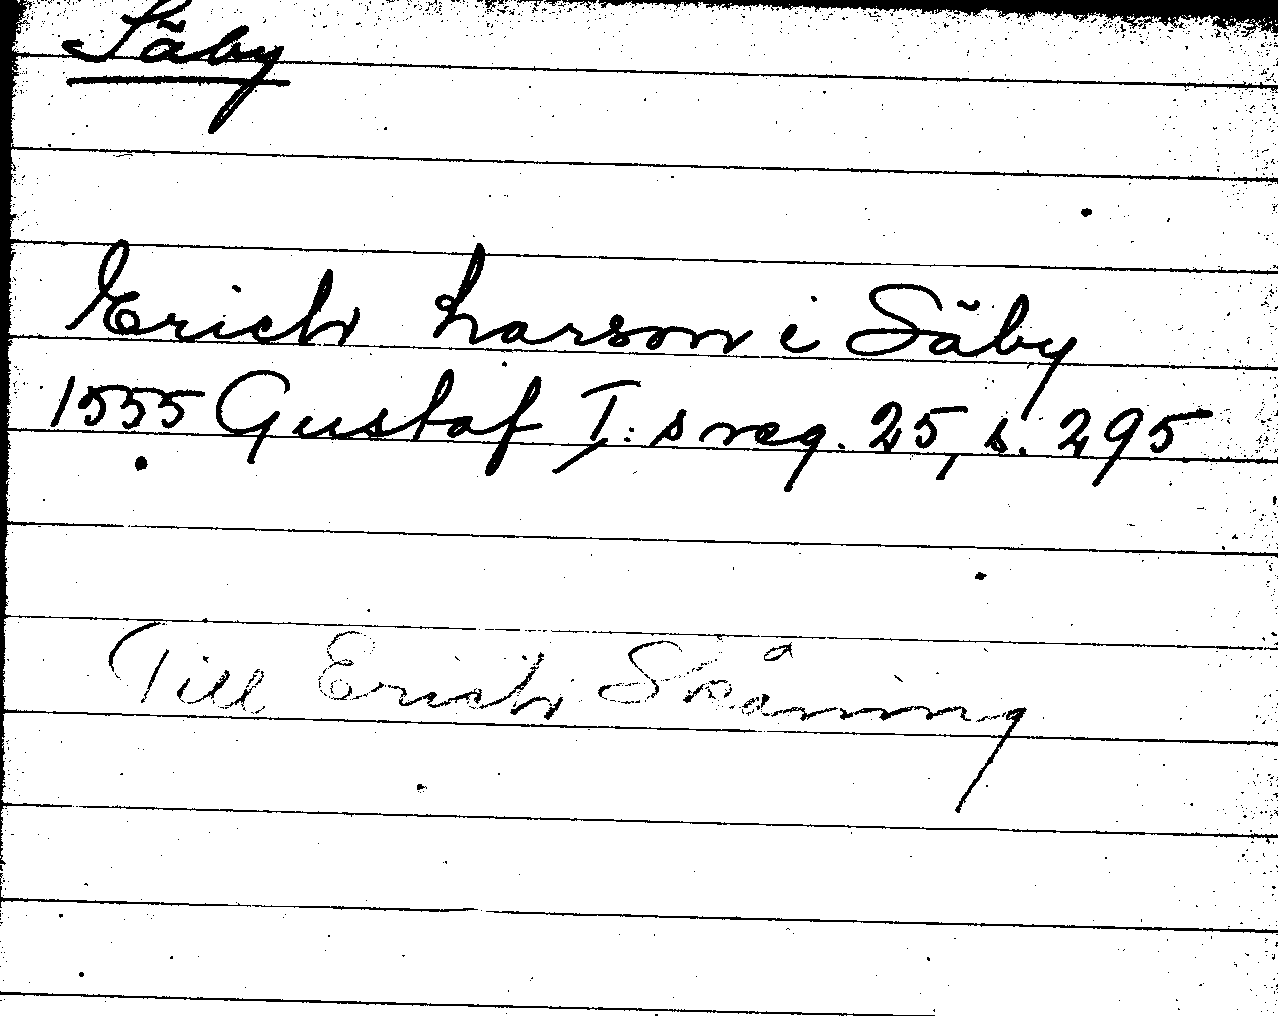 Säby
Erich Larson i Säby
1555 Gustaf I:s reg. 25, s. 295
Till Erich Skåning